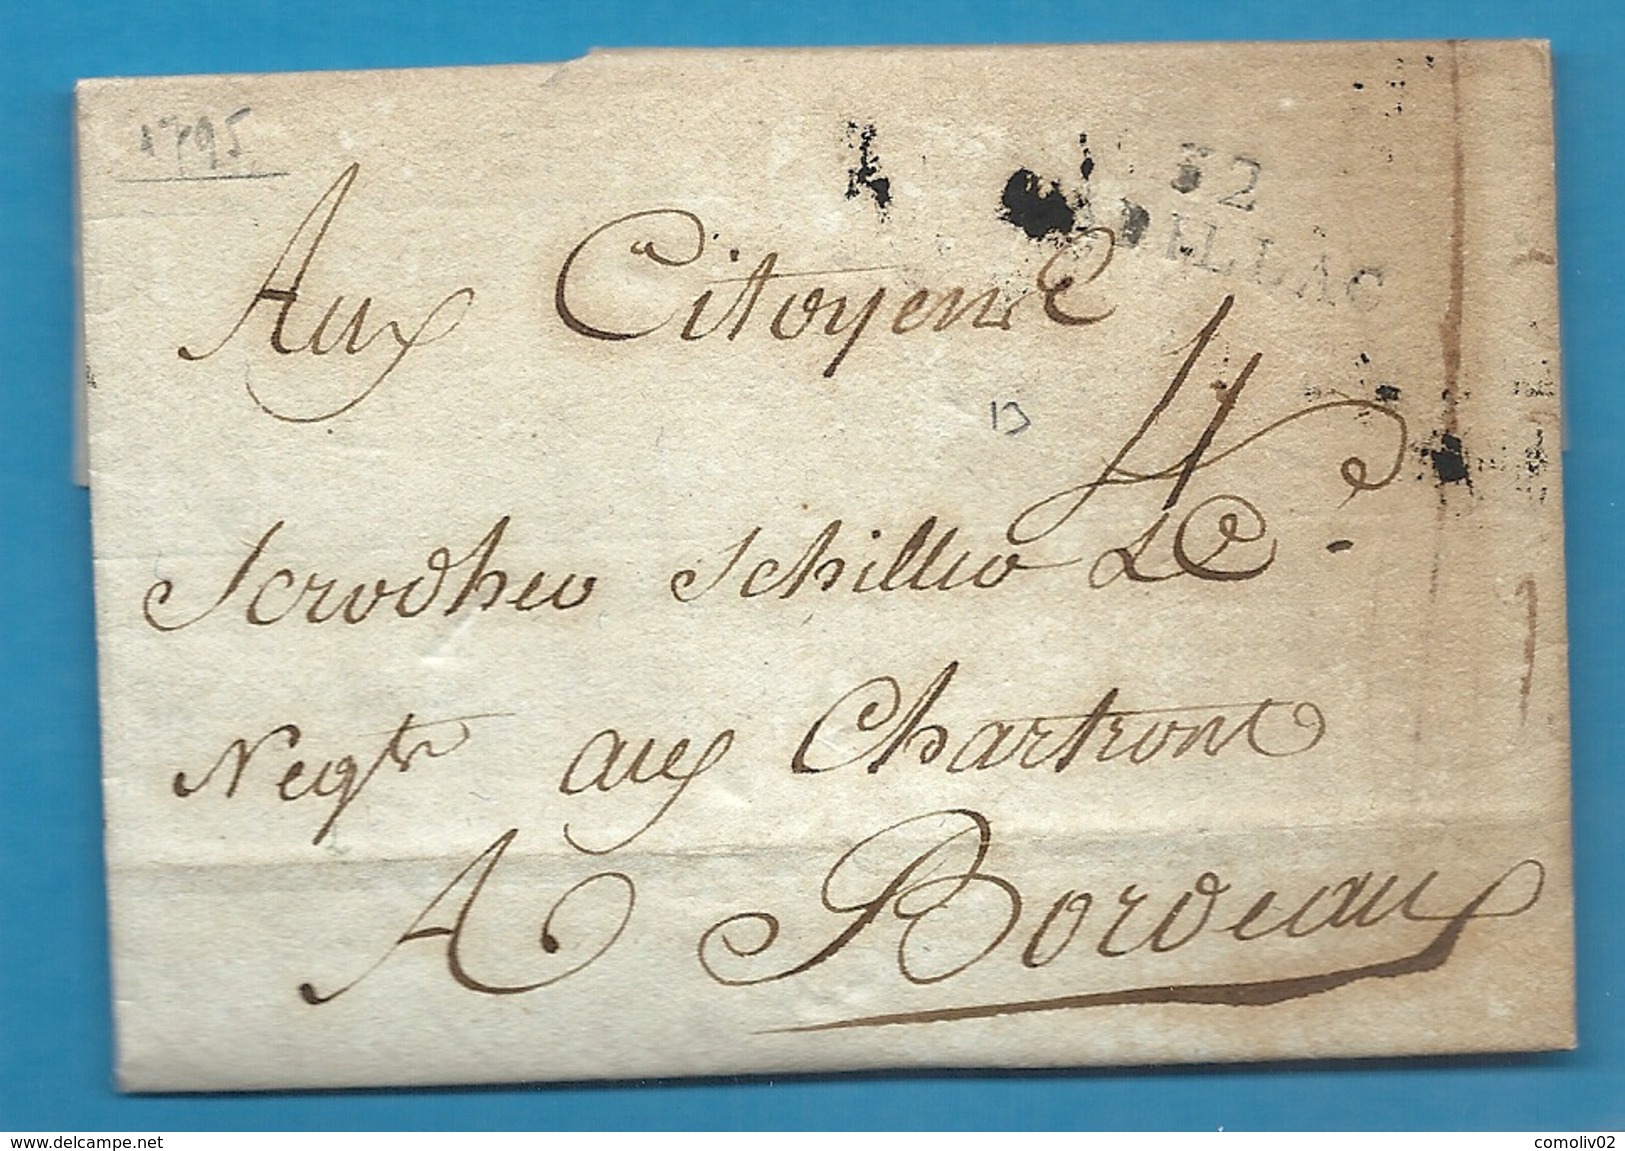 1795
32
CADILLAC
Aux Citoyens
4
13
Scrodher Schiller & Ce
Negts aux Chartrons
A Bordeaux
www.delcampe.net
comoliv02